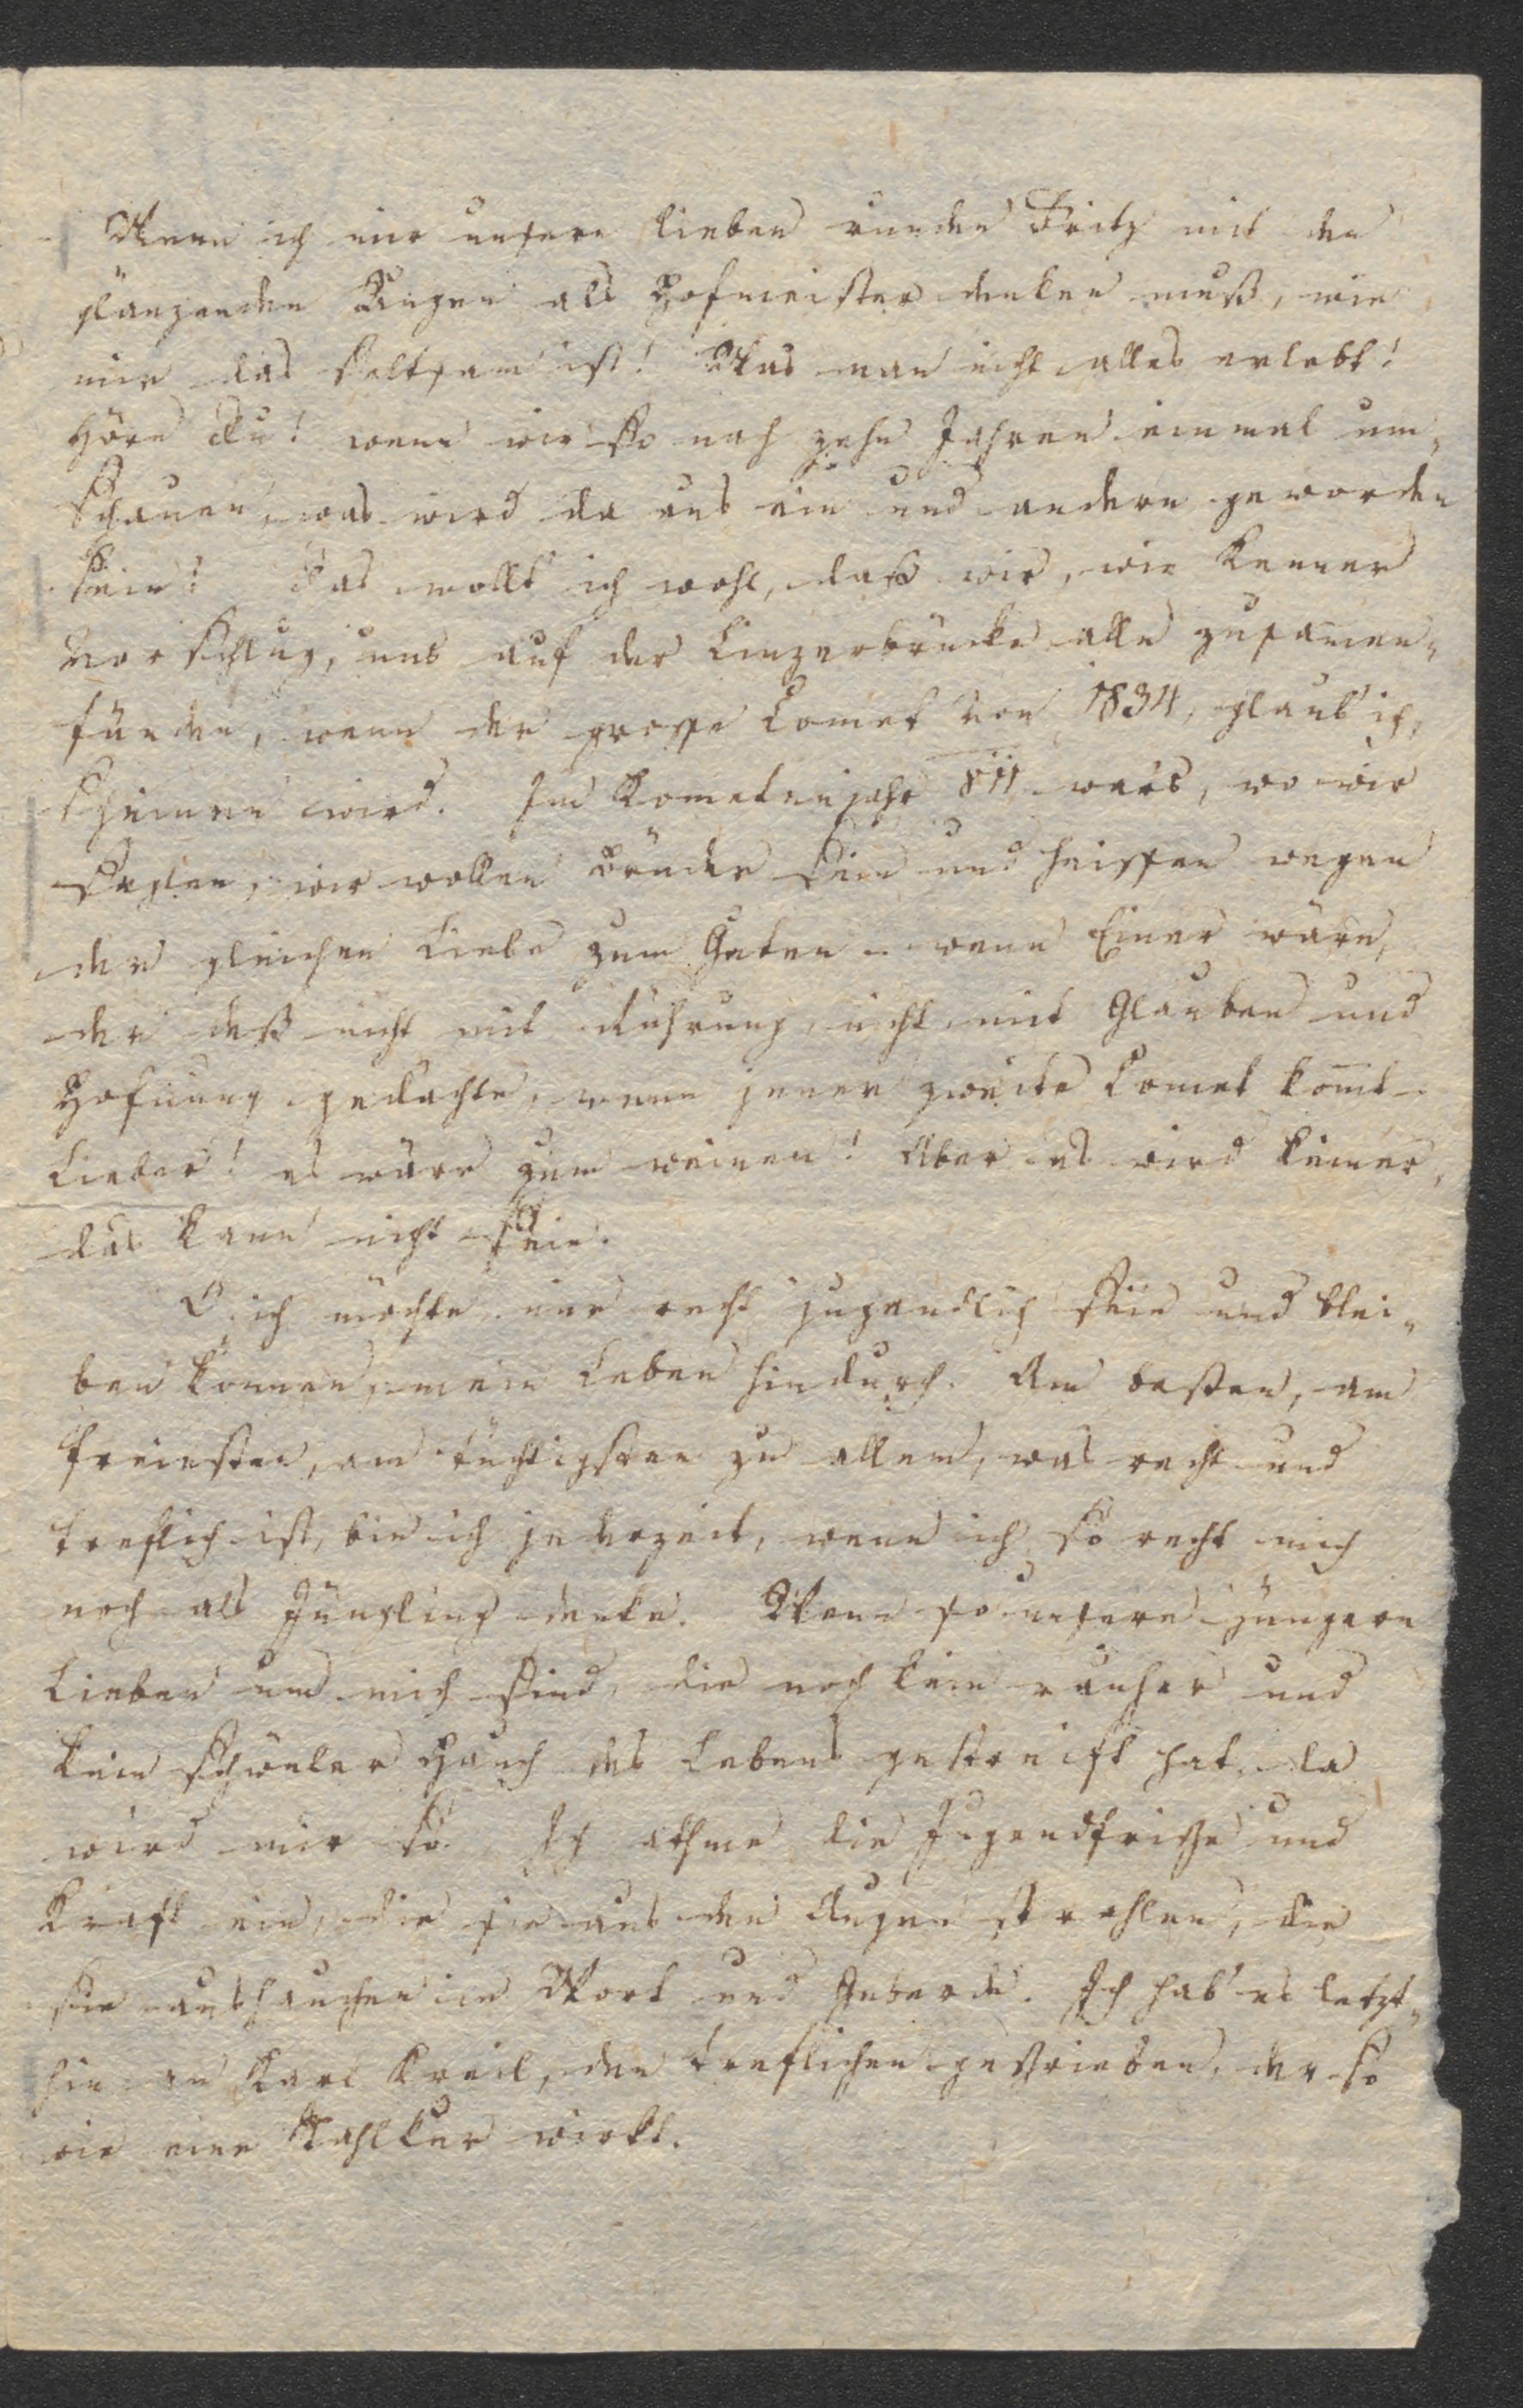 Wenn ich mir unsern lieben runden Fritz mit den
glänzenden Augen als Hofmeister denken muß, wie
mir das seltsam ist! Was man nicht alles erlebt!
Höre Du! wenn wir so nach zehn Jahren einmal um-
schauen, was wird da aus ein und andern geworden
sein! Das wollt ich wohl, daß wir, wie Kenner
vorschlug, uns auf der Linzerbrücke alle zusamen-
fünden, wenn der grosse Comet von 1834, glaub' ich,
scheinen wird. Im Kometenjahr 811 war's, wo wir
sagten, wir wollen Brüder sein und heissen wegen
der gleichen Liebe zum Guten – wenn Einer wäre,
der deß nicht mit Rührung, nicht mit Glauben und
Hofnung gedächte, wenn jener zweite Comet komt –
Lieber! es wäre zum weinen! Aber es wird keiner,
das kann nicht sein.
O, ich möchte nur recht jugendlich sein und blei-
ben können, mein Leben hindurch. Am besten, am
freiesten, am tüchtigsten zu allem, was recht und
treflich ist, bin ich jederzeit, wenn ich so recht mich
noch als Jüngling denke. Wenn so unsere jüngern
Lieben um mich sind, die noch kein rauher und
kein schwüler Hauch des Lebens gestreift hat, da
wird mir so. Ich athme die Jugendfrische und
Kraft ein, die sie aus den Augen strahlen, die
sie aushauchen in Wort und Geberde. Ich hab' es letzt-
hin an Karl Kreil, den treflichen geschrieben, der so
wie eine Stahlkur wirkt.